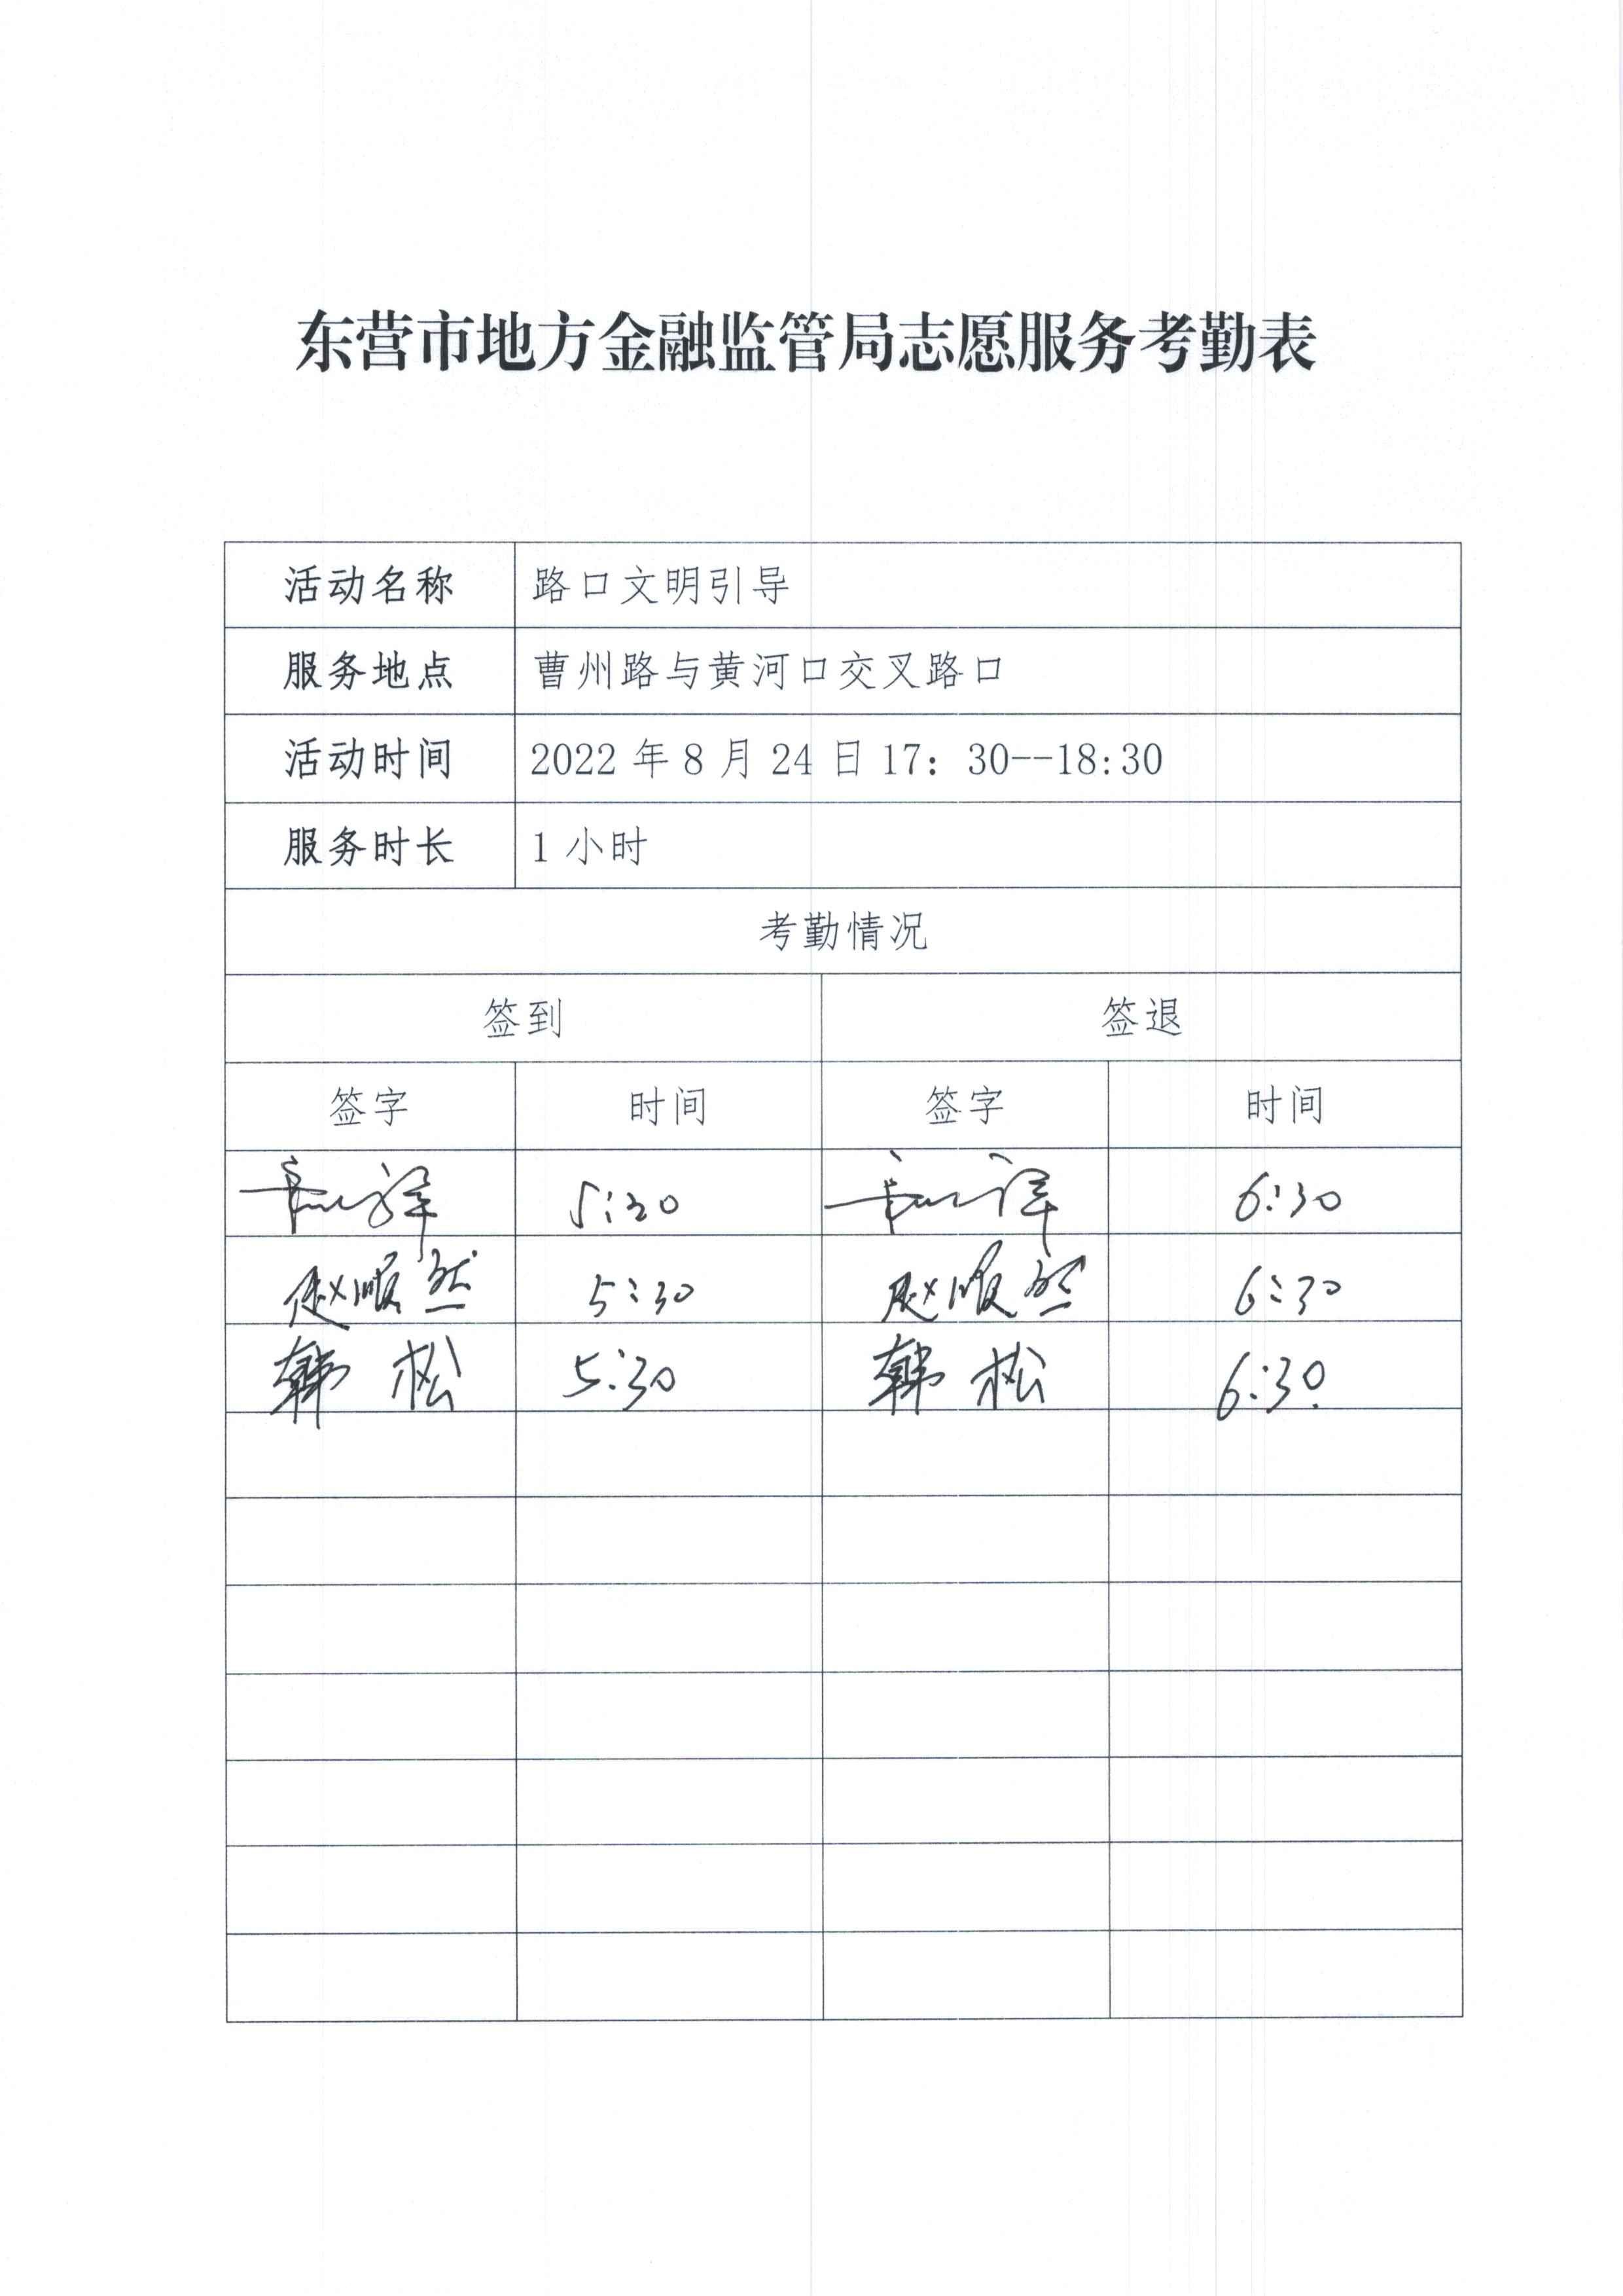 东营市地方金融监管局志愿服务考勤表
活动名称 路口文明引导
服务地点 曹州路与黄河口交叉路口
活动时间 2022年8月24日17：30--18:30
服务时长 1小时
考勤情况
签到 签退
签字 时间 签字 时间
5:30 6:30
赵顺然 5:30 赵顺然 6:30
韩松 5:30 韩松 6:30